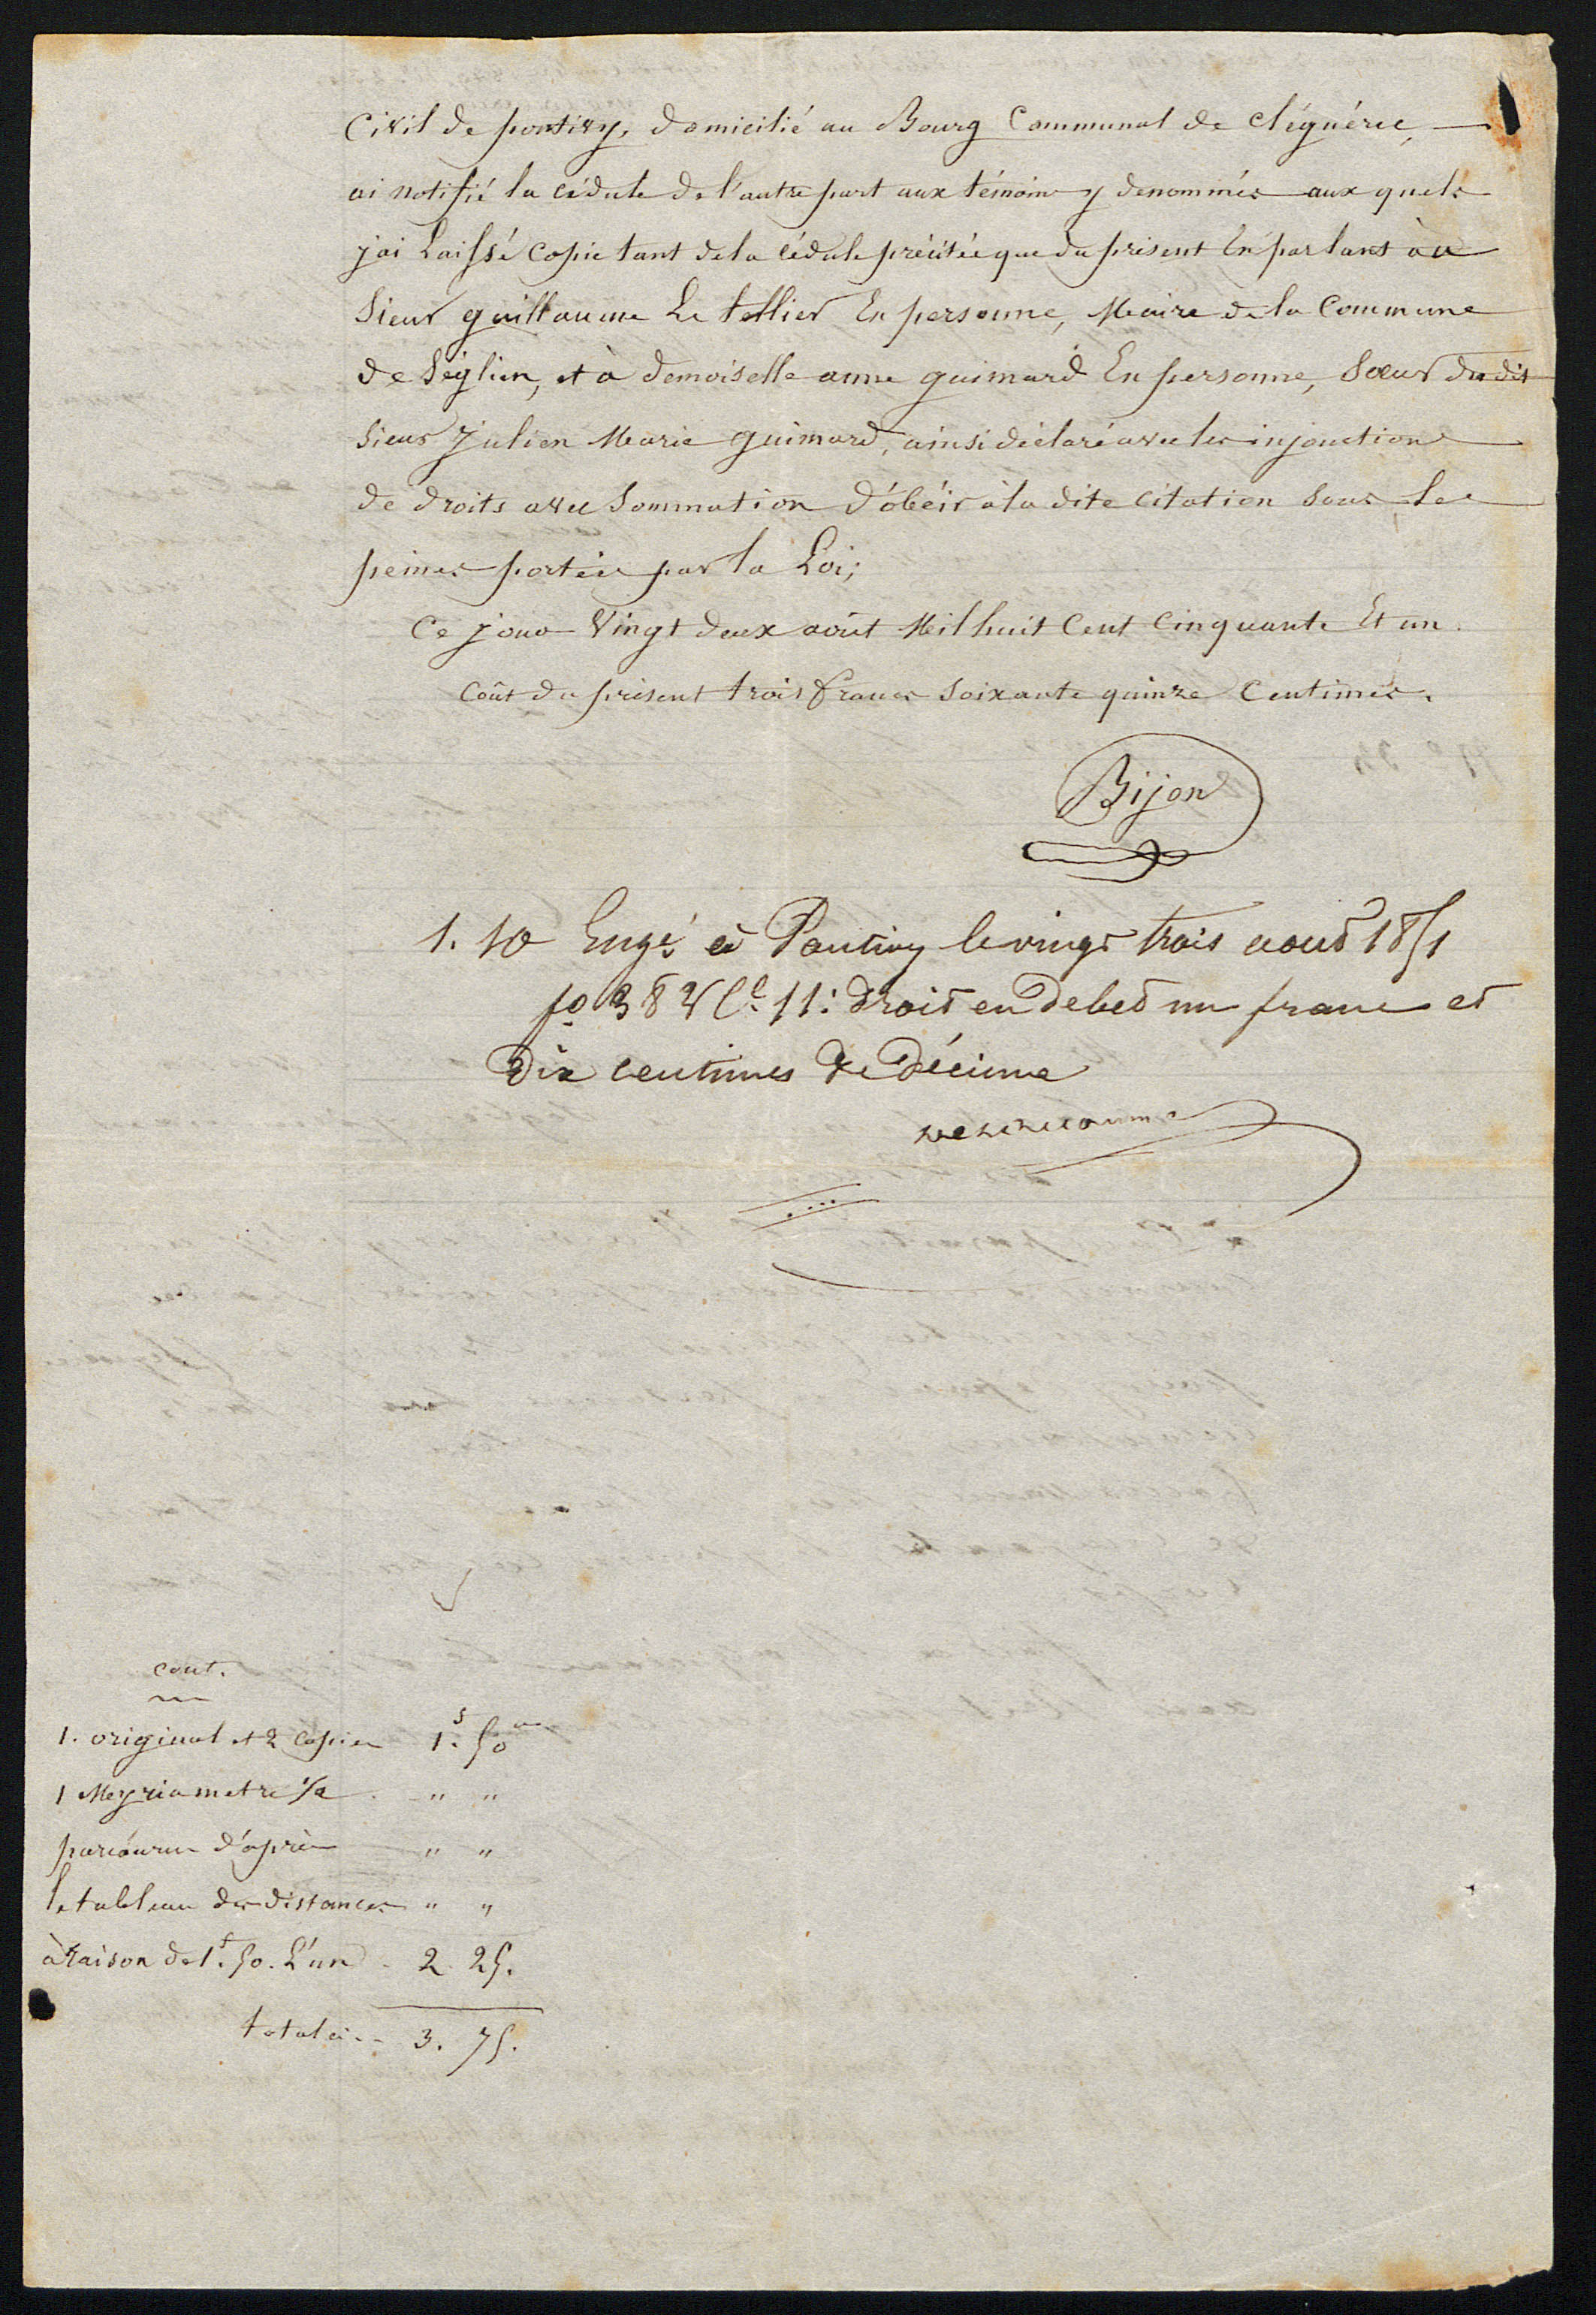 Civil de pontivy, domicilié au Bourg Communal de cléguérec,
ai notifié la cédule de l'autre part aux témoins y denommés aux quels
j'ai Laissé Copie tant de la cédule précitée que du présent En parlant au
Sieur guillaume Le tellier En personne, Maire de la Commune
de Séglien, et à demoiselle anne guimard En personne, Sœur du dit
Sieur Julien Marie guimard, ainsi déclaré avec les injonctions
de droits avec Sommation d'obéir à la dite Citation Sous Les
peines portées par la Loi;
Ce jour Vingt deux août Mil huit Cent Cinquante Et un.
Coût du présent trois francs Soixante quinze Centimes.
Bijon
1. 10 Engé à Pontivy le vingt trois aout 1851
fo 38 V Ce 11: droit en Debet un franc et
Dix centimes de Décime
cout.
1. original et 2 Copies 1. 50
1 Meyriametre 1/2 " "
parcourus d'après " "
le tableau des distances " "
à raison de 1f. 50. L'un 2 25.
total ci.. 3. 75.